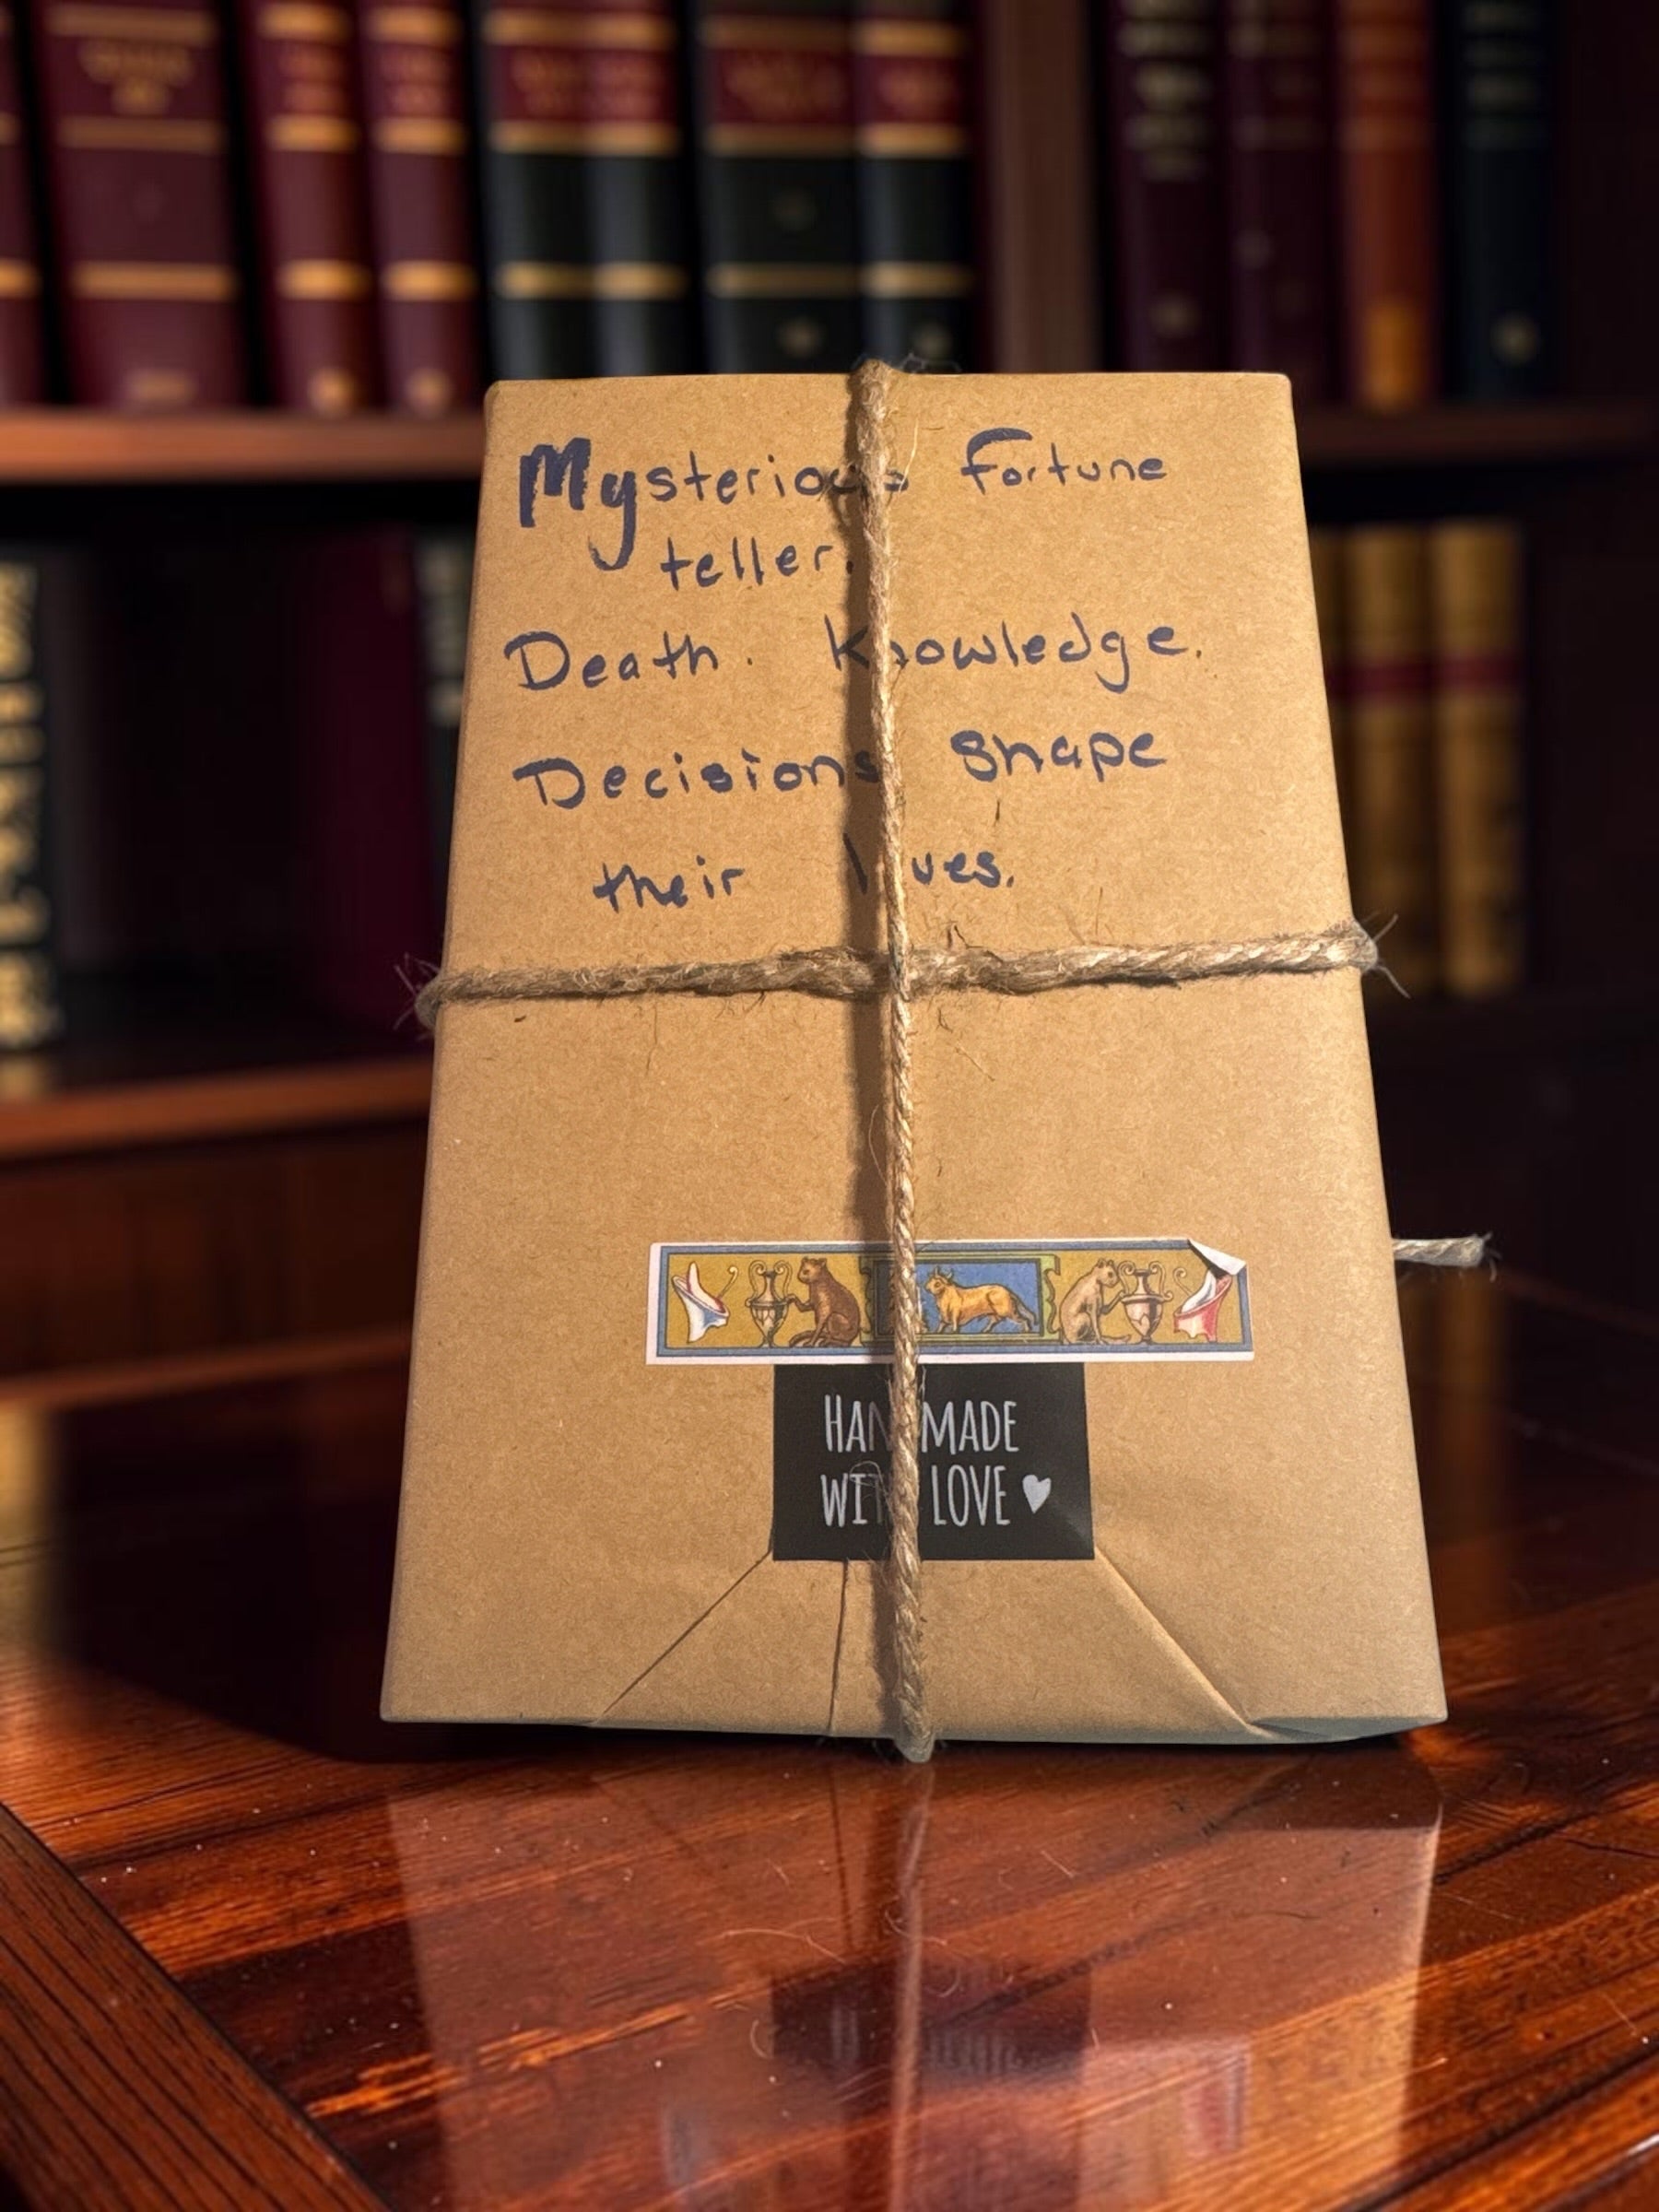 Mysterious Fortune
teller.
Death. Knowledge.
Decisions shape
their lives.
HANDMADE
WITH LOVE